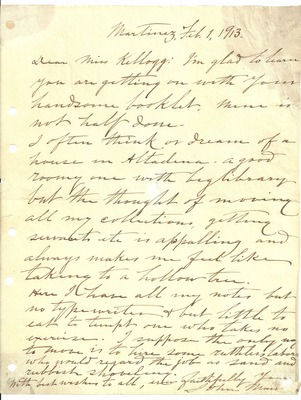 Martinez, Feb. 1, 1913.
Dear Miss Kellogg: I'm glad to learn
you are getting on with your
handsome booklet. Mine is
not half done.
I often think or dream of a
house in Altadena. a good
roomy one with big library
but the thought of moving
all my collections, getting
servants etc is appalling and
always makes me feel like
taking to a hollow tree.
Here I have all my notes but
no typewriter & but little to
eat to tempt one who takes no
exercise. I suppose the only way
to move is to hire some ruthless laborer
who would regard the job as sand and
rubbish shoveling.
With best wishes to all, ever faithfully yours
John Muir